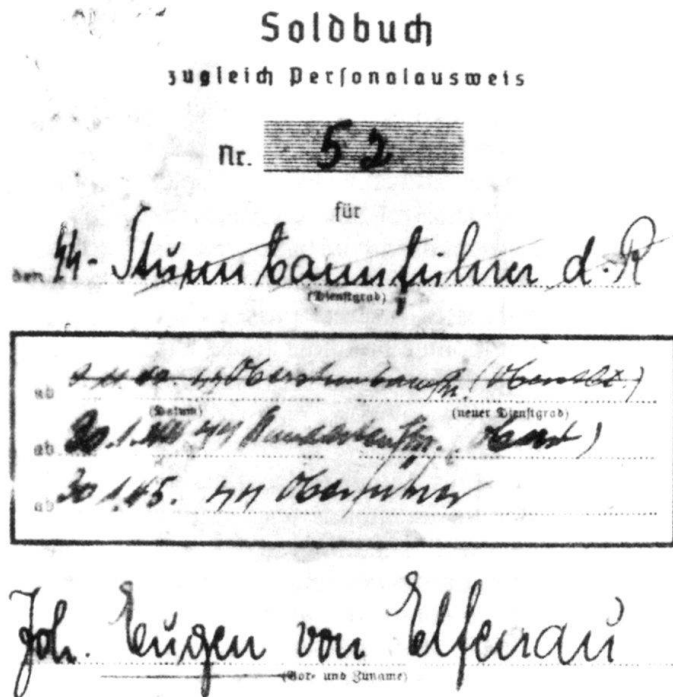 Soldbuch
zugleich Personalausweis
Nr. 52
für
den SS-Sturmbannführer d. R
(Dienstgrad)
ab SS Obersturmbannf.
(Datum) (neuer Dienstgrad)
ab 30.1. SS Standartenfhr. Oberst)
ab 30 1.45. SS Oberführer
Joh. Eugen von Elfenau
(Vor- und Zuname)